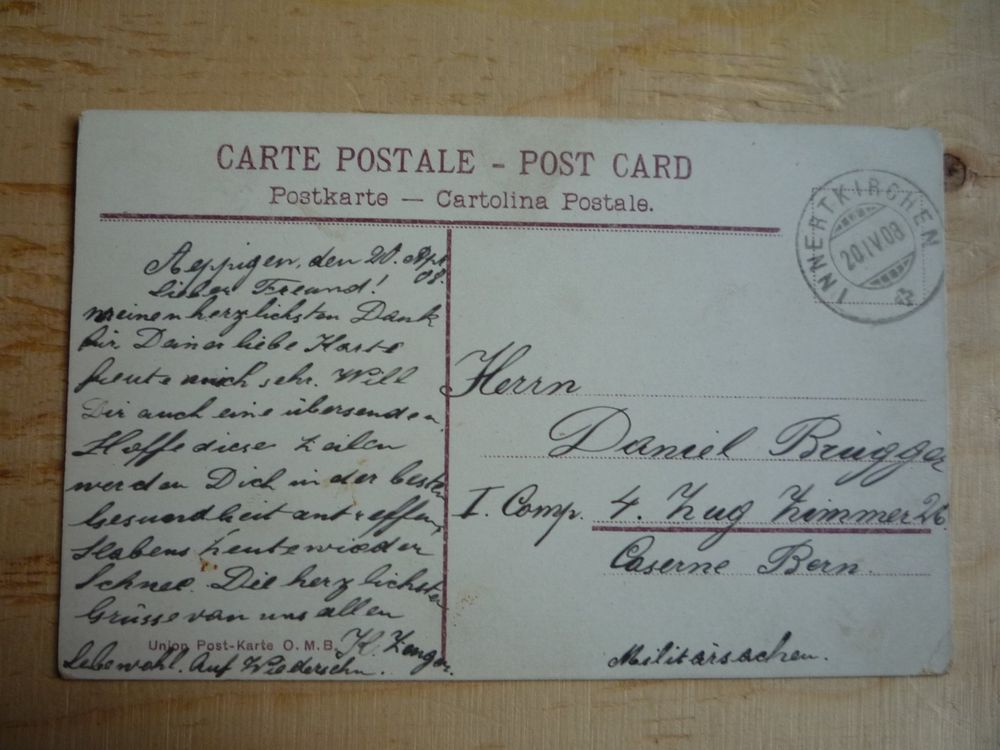 CARTE POSTALE - POST CARD
Postkarte — Cartolina Postale.
INNERTKIRCHEN
20.IV.08
Aeppigen, den 20. Apr.
08.
Lieber Freund!
meinen herzlichsten Dank
für Deine liebe Karte
freute mich sehr. Will
Dir auch eine übersenden.
Hoffe diese Zeilen
werden Dich in der besten
Gesundheit antreffen,
Habens heute wieder
Schnee. Die herzlichsten
Grüsse von uns allen
Union Post-Karte O. M. B.
Lebewohl. Auf Wiedersehn.
Herrn
Daniel Brügger
I. Comp. 4. Zug Zimmer 26.
Caserne Bern.
Militärsachen.